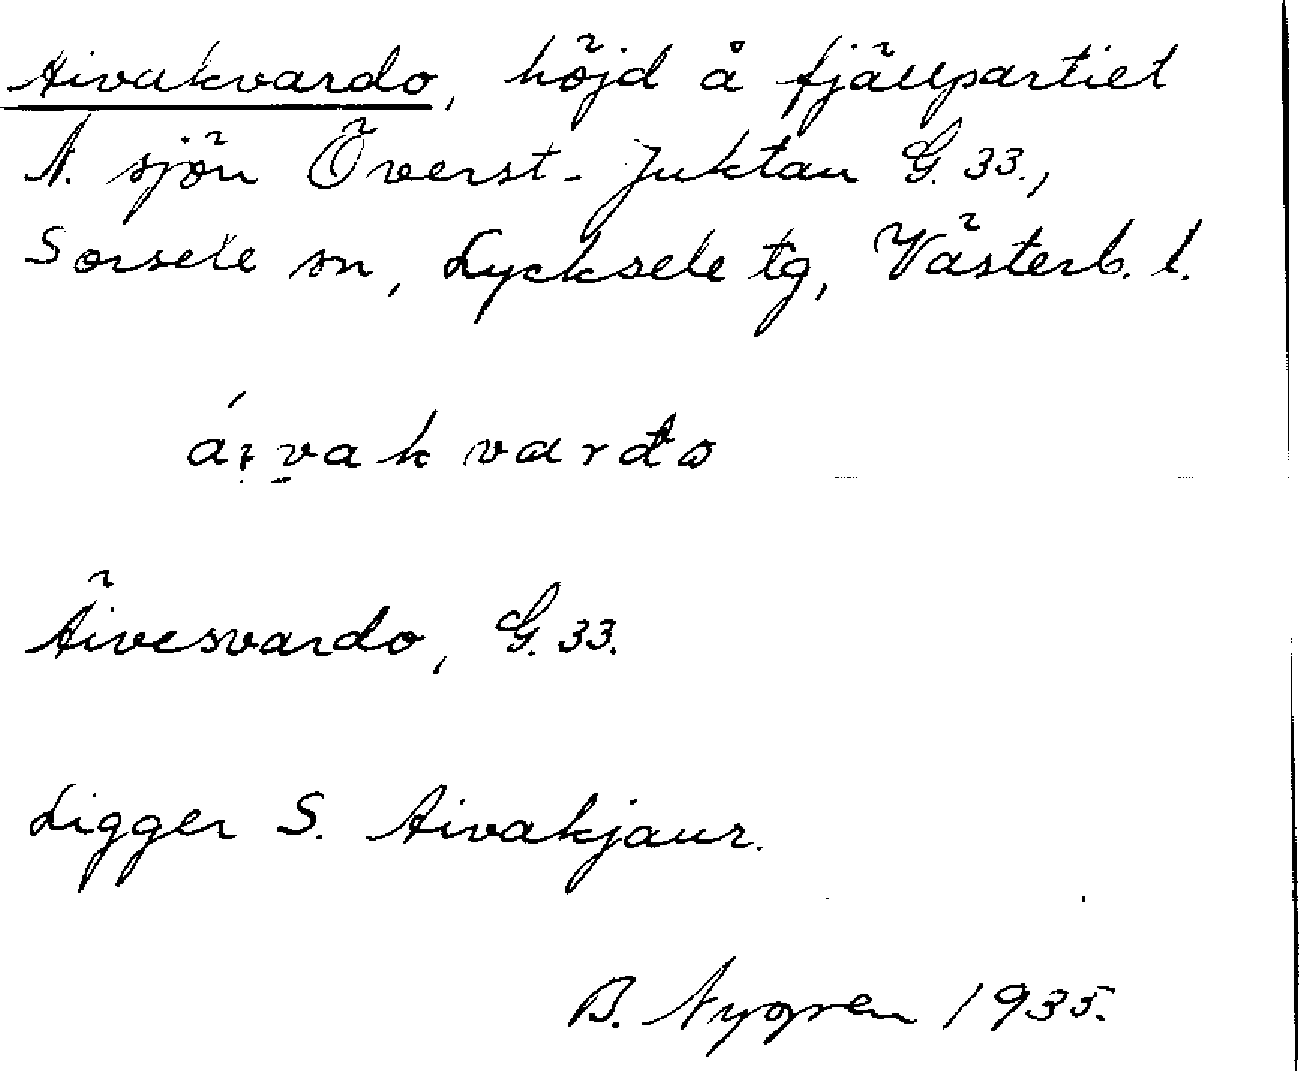 Aivakvardo, höjd å fjällpartiet
N. sjön Överst-Juktan G. 33.,
Sorsele sn, Lycksele tg, Västerb. l.
áι̯vak varđo
Äivesvardo, G. 33.
Ligger S. Aivakjaur.
B. Nygren 1935.